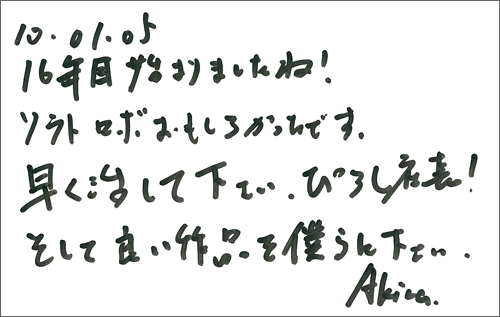 10.01.05
16年目始まりましたね!
ソフトロボおもしろかったです。
早く治して下さい、ひろし代表!
そして良い作品を僕らに下さい.
Akira.